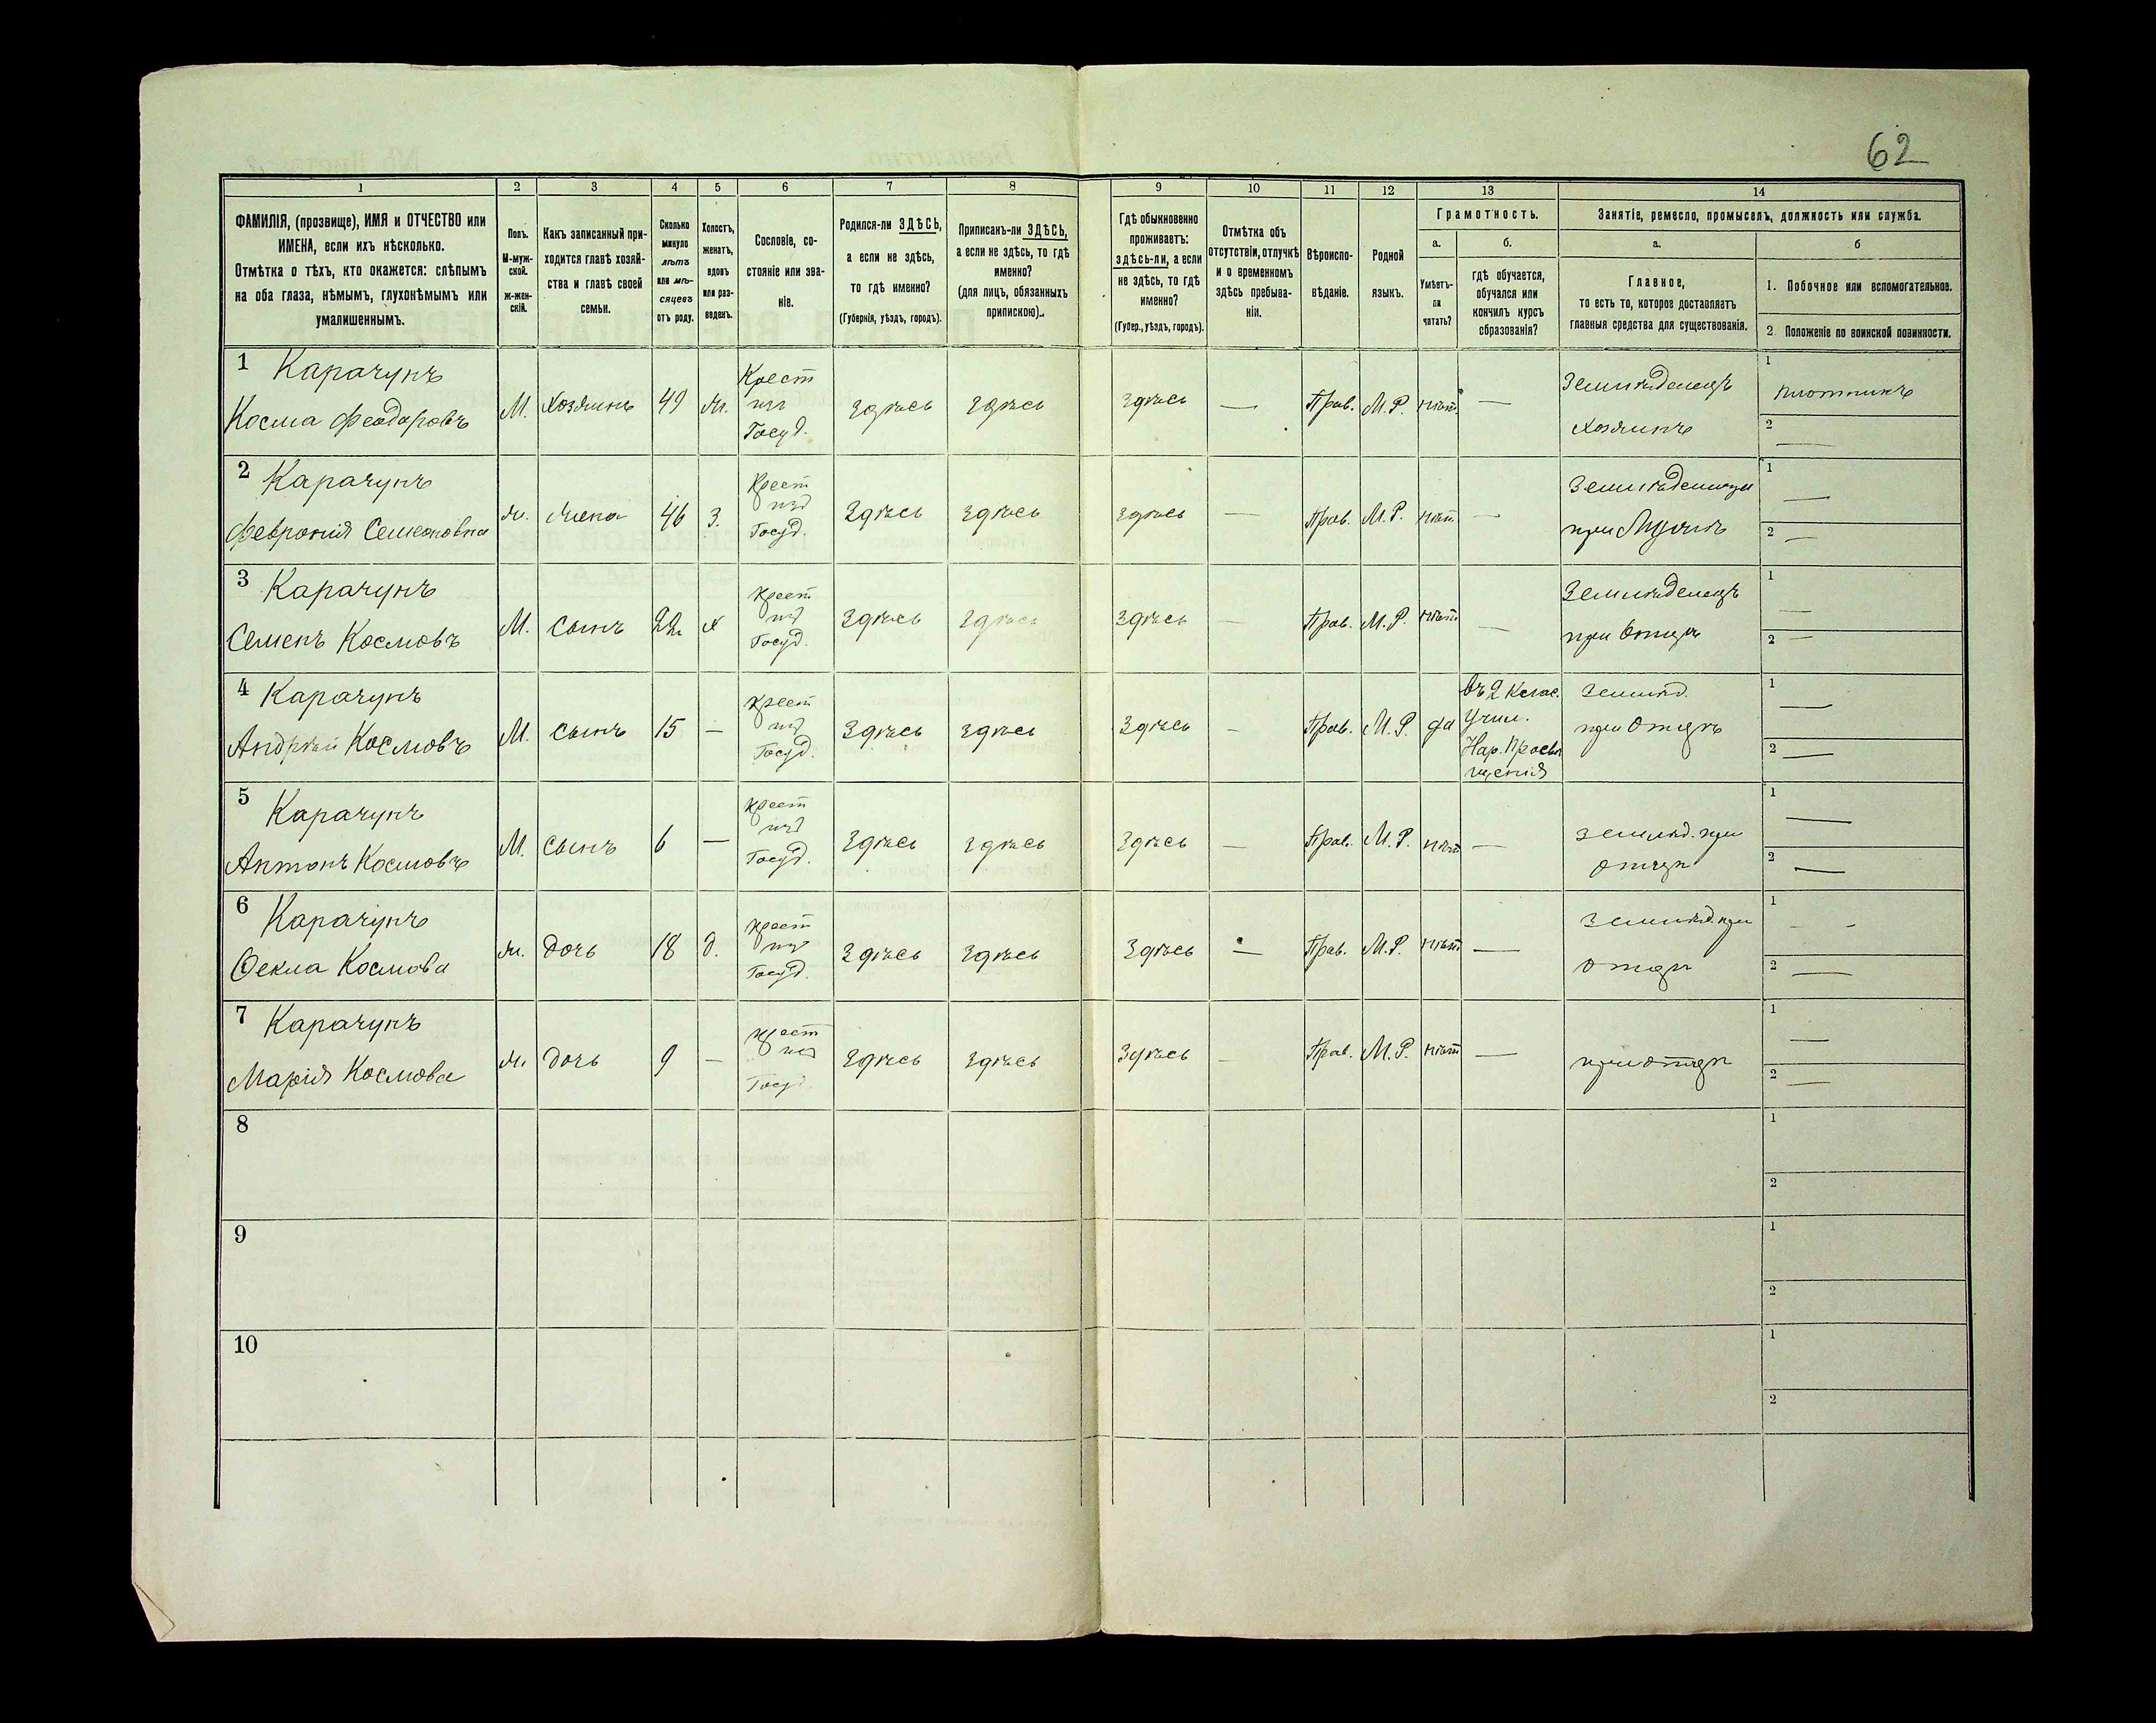 62
1 2 3 4 5 6 7 8 9 10 11 12 13 14
ФАМИЛІЯ, (прозвище), ИМЯ и ОТЧЕСТВО или
ИМЕНА, если ихъ нѣсколько.
Отмѣтка о тѣхъ, кто окажется: слѣпымъ
на оба глаза, нѣмымъ, глухонѣмымъ или
умалишеннымъ.
Полъ.
М-муж-
ской.
ж-жен-
скій.
Какъ записанный при-
ходится главѣ хозяй-
ства и главѣ своей
семьи.
Сколько
минуло
лѣтъ
или мѣ-
сяцевъ
отъ роду.
Холостъ,
женатъ,
вдовъ
или раз-
веденъ.
Сословіе, со-
стояніе или зва-
ніе.
Родился-ли ЗДѢСЬ,
а если не здѣсь,
то гдѣ именно?
(Губернія, уѣздъ, городъ).
Приписанъ-ли ЗДѢСЬ,
а если не здѣсь, то гдѣ
именно?
(для лицъ, обязанныхъ
припискою).
Гдѣ обыкновенно
проживаетъ:
здѣсь-ли, а если
не здѣсь, то гдѣ
именно?
(Губер., уѣздъ, городъ).
Отмѣтка объ
отсутствіи, отлучкѣ
и о временномъ
здѣсь пребыва-
ніи.
Вѣроиспо-
вѣданіе.
Родной
языкъ.
Грамотность.
а.
Умѣетъ-
ли
читать?
б.
гдѣ обучается,
обучался или
кончилъ курсъ
образованія?
Занятіе, ремесло, промыселъ, должность или служба.
а.
Главное,
то есть то, которое доставляетъ
главныя средства для существованія.
б
1. Побочное или вспомогательное.
2. Положеніе по воинской повинности.
1 Карачунъ
Косма Феодоровъ
М. Хозяинъ 49 ж.
Крест
изъ
Госуд.
Здѣсь Здѣсь Здѣсь — Прав. М.Р. нѣтъ —
Земледѣлецъ
Хозяинъ
1 плотникъ
2 —
2 Карачунъ
Февронія Семеновна
ж. жена 46 З.
Крест
изъ
Госуд.
Здѣсь Здѣсь Здѣсь — Прав. М.Р. нѣтъ —
при Мужѣ
1 —
2 —
3 Карачунъ
Семенъ Космовъ
М. сынъ 22 х
Крест
изъ
Госуд.
Здѣсь Здѣсь Здѣсь — Прав. М.Р. нѣтъ —
Земледѣлецъ
при Отцѣ
1 —
2 —
4 Карачунъ
Андрѣй Космовъ
М. сынъ 15 —
Крест
изъ
Госуд.
Здѣсь Здѣсь Здѣсь — Прав. М.Р. да
въ 2 Клас.
Учил.
Нар. Просвѣ
щенія
Землед.
при Отцѣ
1 —
2 —
5 Карачунъ
Антонъ Космовъ
М. сынъ 6 —
Крест
изъ
Госуд.
Здѣсь Здѣсь Здѣсь — Прав. М.Р. нѣтъ —
Землед. при
Отцѣ
1 —
2 —
6 Карачунъ
Ѳекла Космова
ж. дочь 18 д.
Крест
изъ
Госуд.
Здѣсь Здѣсь Здѣсь — Прав. М.Р. нѣтъ —
Землед. при
Отцѣ
1 - -
2 —
7 Карачунъ
Марія Космова
ж. дочь 9 —
Крест
изъ
Госуд.
Здѣсь Здѣсь Здѣсь — Прав. М.Р. нѣтъ —
при отцѣ
1 —
2 —
8
1
2
9
1
2
10
1
2